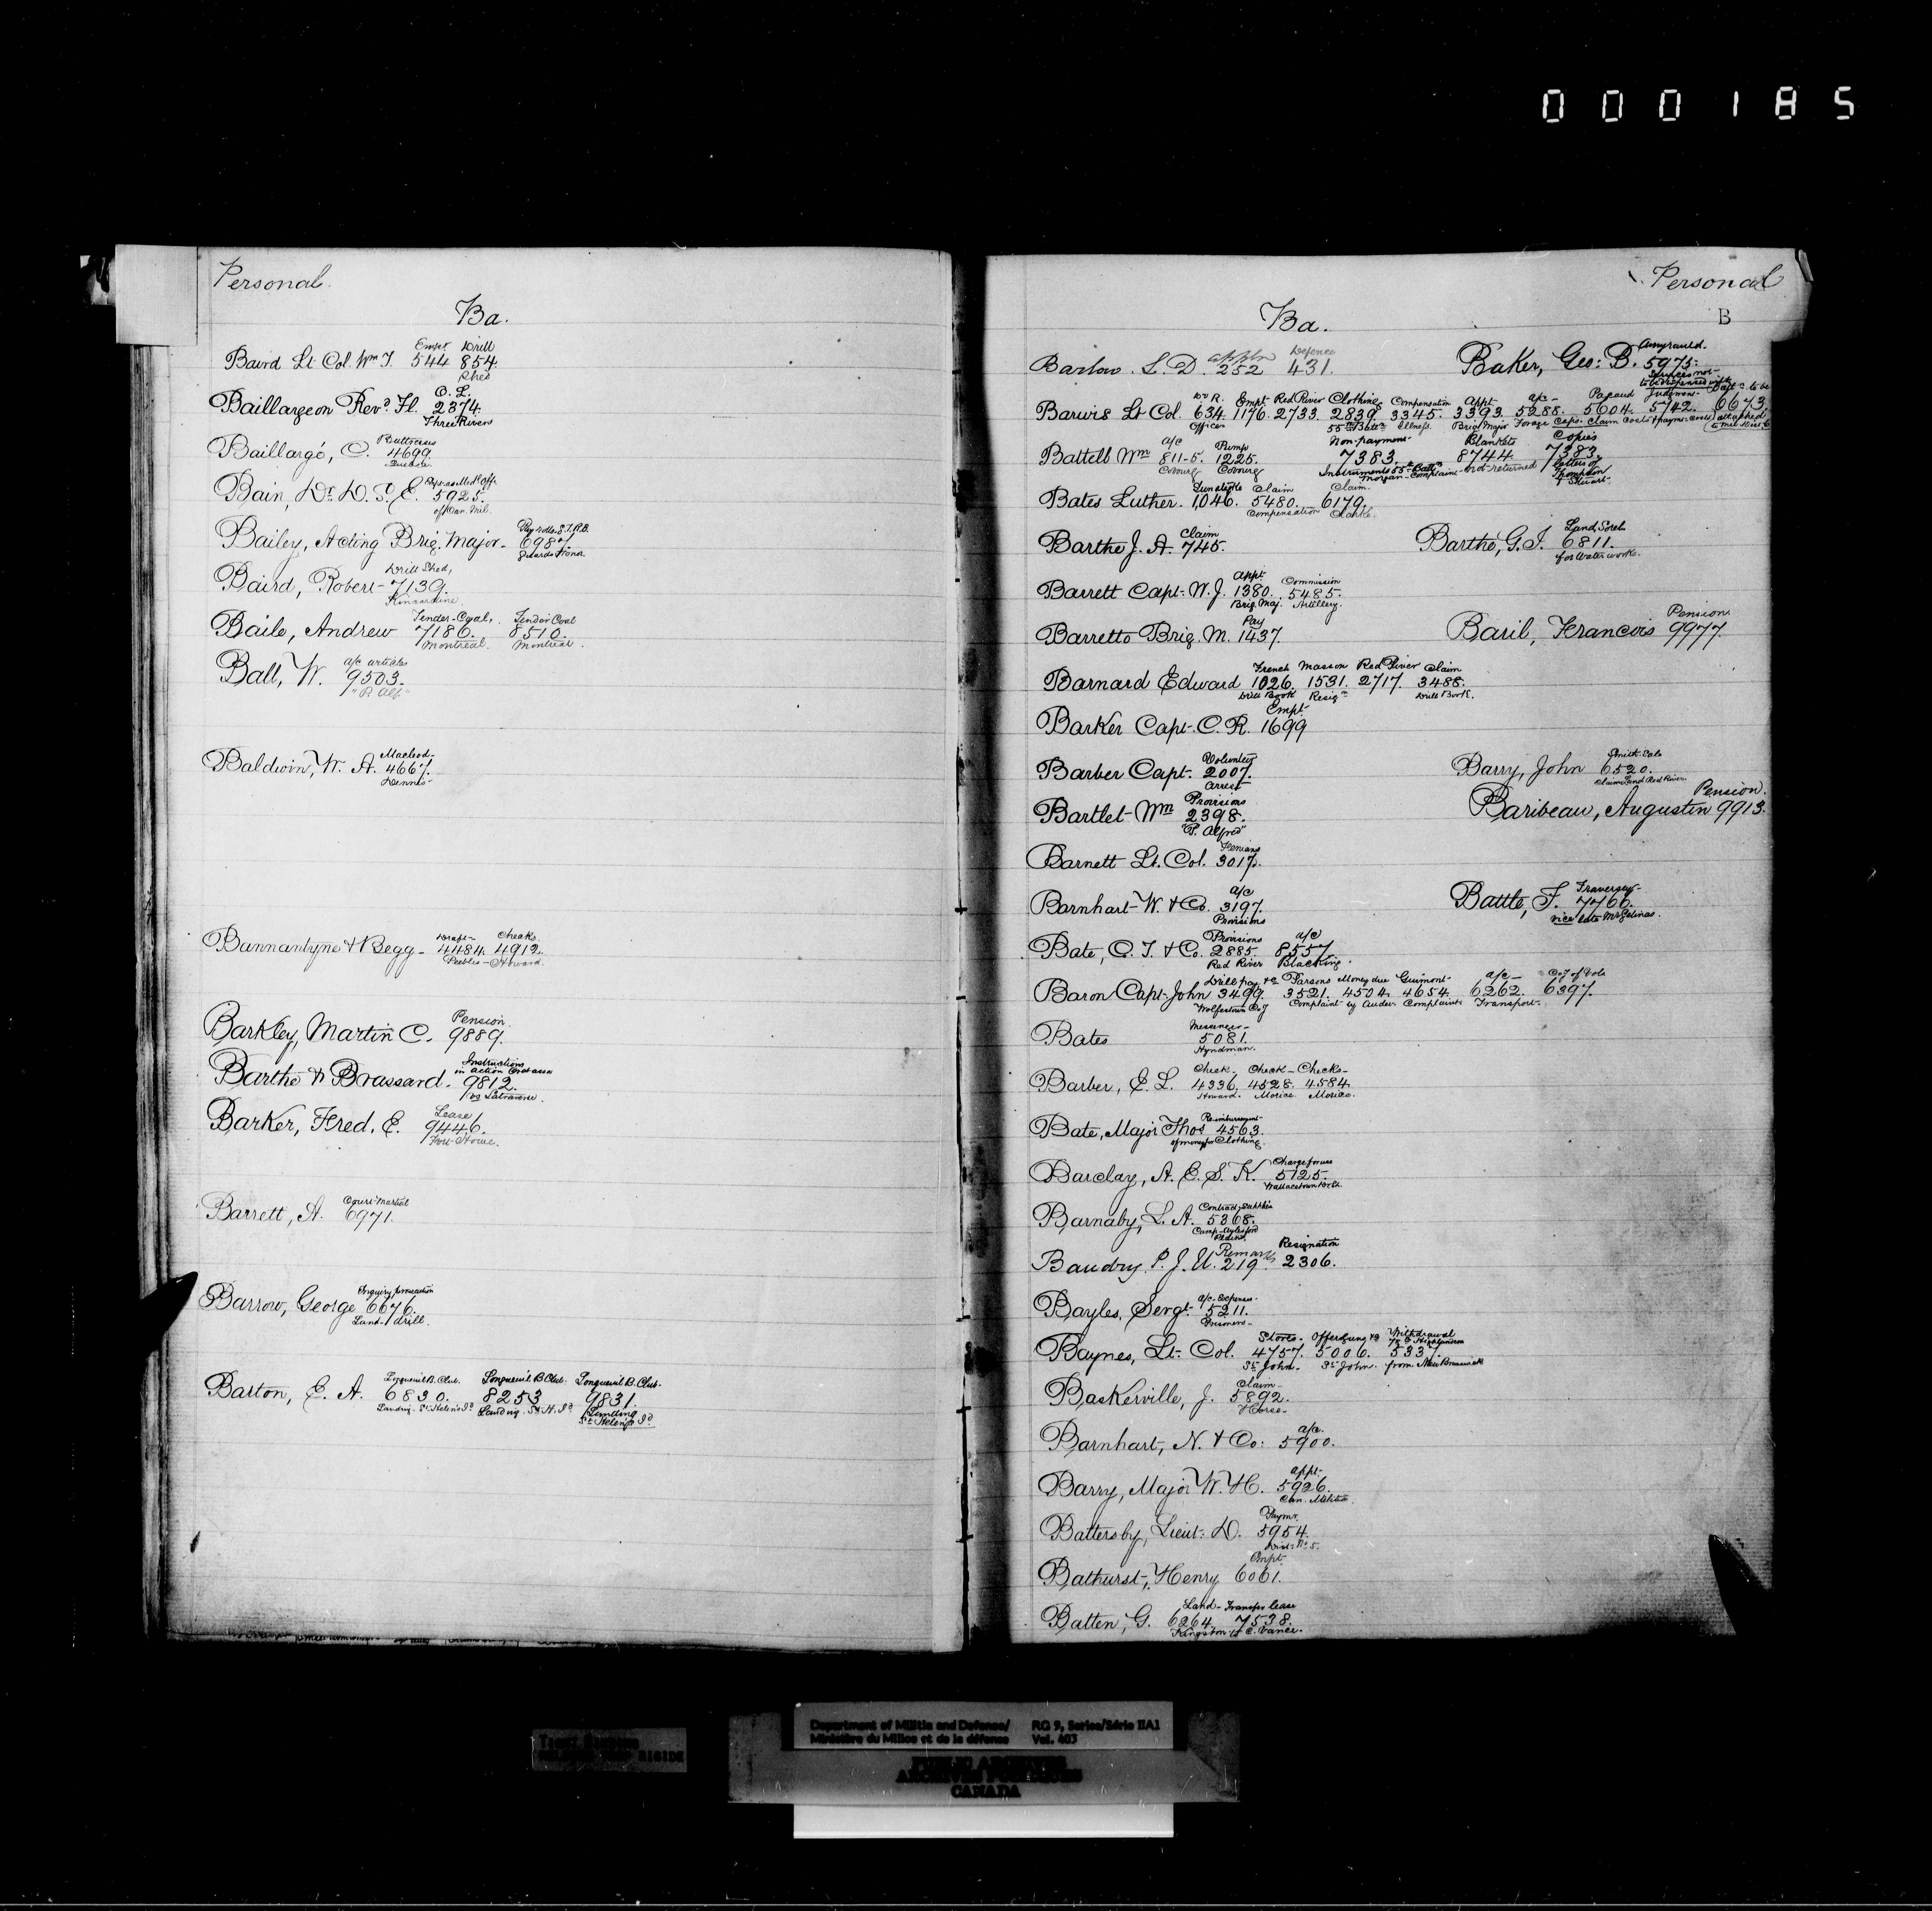 000185
Personal.
Ba.
Empt Drill
Baird Lt Col. Wm T. 544 854.
Shed
O. L.
Baillargeon Revd. Fl. 2374.
Three Rivers
Buttresses
Baillargé, C. 4699.
Bain, Dr. D. S. E. 5925.
of Can. Mil.
Bailey, Acting Brig. Major - 6987.
Guards Honor
Drill Shed,
Baird, Robert - 7139.
Kincardine
Tender-Coal, Tender Coal
Baile, Andrew 7186. 8510.
Montreal. Montreal.
a/c articles
Ball, W. 9503.
"P. Alf"
Macleod-
Baldwin, W. A. 4667.
Dennis-
Draft- Checks
Bannantyne & Begg - 4484. 4912.
Peebles - Howard.
Pension.
Barkley, Martin C. 9889.
Instructions
in action
Barthe & Brassard. 9812.
vs Latraverse.
Lease
Barker, Fred. E. 9446.
Fort Howe.
Court Martial
Barrett, A. 6971.
Barrow, George 6676.
Land - drill.
Longueuil B. Club. Longueuil B Club. Longueuil B. Club.
Barton, E. A. 6830. 8253 9831.
Landing. St. Helen's Id Landing. St. H. Id Landing
St. Helen's Id.
Personal
B
Ba.
appln Defence
Barlow. S. D. 252 431.
Baker, Geo: B. 5975.
Empt Red River Clothing Compensation Appt a/c - Papaud Judgment Capt. to be
Barwis Lt Col. 634. 1176. 2733. 2839. 3345. 3393. 5288. 5604. 5742. 6673
Officer 55th Battn Illness. Brig Major Forage Caps. Claim Costs attached
a/c Pump Non-payment Blankets Copies
Battell Wm 811-5. 1225. 7383. 8744. 7383.
Cobourg Cobourg Instruments 55th Battn not returned Letters of
Morgan - Complaint Thompson
& Stewart
Sunstroke Claim Claim.
Bates Luther. 1046. 5480. 6179.
Compensation Clarke.
Claim
Barthe J. A. 745.
Land, Sorel
Barthe, G. I. 6811.
for Water works.
Appt. Commission
Barrett Capt. W. J. 1380. 5485.
Brig. Maj. Artillery.
Pay
Barretto Brig. M. 1437.
Pension
Baril, Francois 9977.
French Masson Red River Claim
Barnard Edward 1026. 1531. 2717. 3488.
Drill Book Resign Drill Book.
Empt
Barker Capt. C. R. 1699
Volunteer
Barber Capt. 2007.
Arrest
Smith - Cole
Barry, John 6520.
Claim Land Red River.
Provisions
Bartlet Wm 2398.
"P. Alfred"
Pension.
Baribeau, Augustin 9913.
Fenians
Barnett Lt. Col. 3017.
a/c
Barnhart W. & Co. 3197.
Provisions
Traversy -
Battle, F. 7766.
vice late Mr Gelinas.
Provisions a/c
Bate, C. T. & Co. 2885. 8557.
Red River Blacking.
Drill pay &c Parsons Money due Guimont a/c - Coy of Vols
Baron Capt. John 3499. 3521. 4504. 4654. 6262. 6397.
Wolfestown Coy Complaint by Audet Complaint Transport.
Messenger -
Bates 5081.
Hyndman.
Check. Check - Checks -
Barber, E. L. 4336. 4528. 4584.
Howard. Morice. Morice.
Reimbursement
Bate, Major Thos 4563.
of money for Clothing.
Charge for use
Barclay, A. E. S. K. 5125.
Wallacetown Dr. Sh.
Contract, Supplies
Barnaby, L. A. 5368.
Camp - Aylesford
Remarks Resignation
Baudry. P. J. U. 219. 2306.
a/c. Expenses.
Bayles, Sergt. 5211.
Prisoners -
Stores. Offers Withdrawal
78th Highlanders
Baynes, Lt. Col. 4757. 5006. 5337.
St. John. St. John. from New Brunswick
Claim -
Baskerville, J. 5892.
Horse -
a/c.
Barnhart, N. & Co: 5900.
appt -
Barry, Major W. H. 5926.
Can. Militia.
Paymr.
Battersby, Lieut. D. 5954.
Dist: No 5.
Empt
Bathurst, Henry 6061.
Land - Transfer lease
Batten, G. 6264. 7538.
Kingston to C. Vance.
Department of Militia and Defence/ RG 9, Series/Série IIA1
Ministère du Milice et de la défense Vol. 403
PUBLIC ARCHIVES
ARCHIVES PUBLIQUES
CANADA